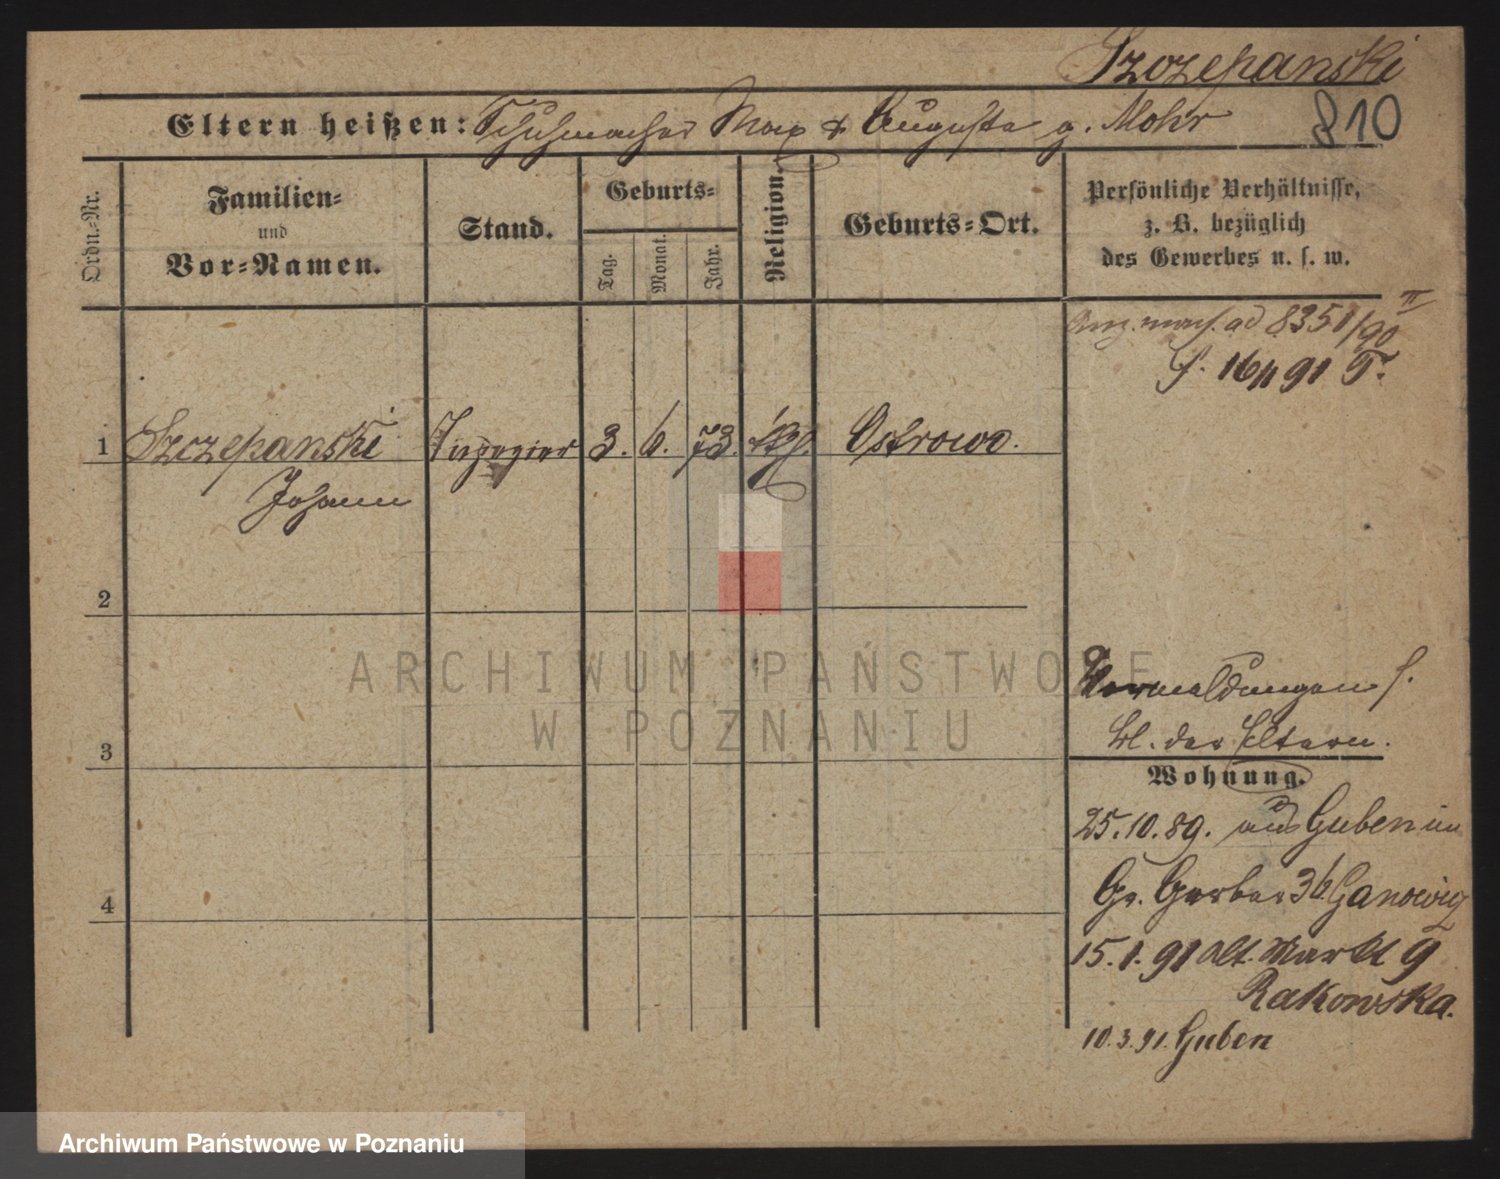 Szczepanski
810
Eltern heißen: Schuhmacher Max & Auguste g. Mohr
Ordn.-Nr.
Familien-
und
Vor-Namen.
Stand.
Geburts-
Tag.
Monat.
Jahr.
Religion.
Geburts-Ort.
Persönliche Verhältnisse,
z. B. bezüglich
des Gewerbes u. s. w.
ad 8358/90 II
f. 16/1 91 T.
1 Szczepanski 3. 6. 73. kth. Ostrowo.
Johann
2
3
4
ARCHIWUM PAŃSTWOWE
W POZNANIU
Vormeldungen s.
bl. der Eltern.
Wohnung.
25.10.89. aus Guben in
Gr. Gerber 36 Ganowicz
15.1.91 Alt. Markt 9
Rakowska.
10.3.91. Guben
Archiwum Państwowe w Poznaniu